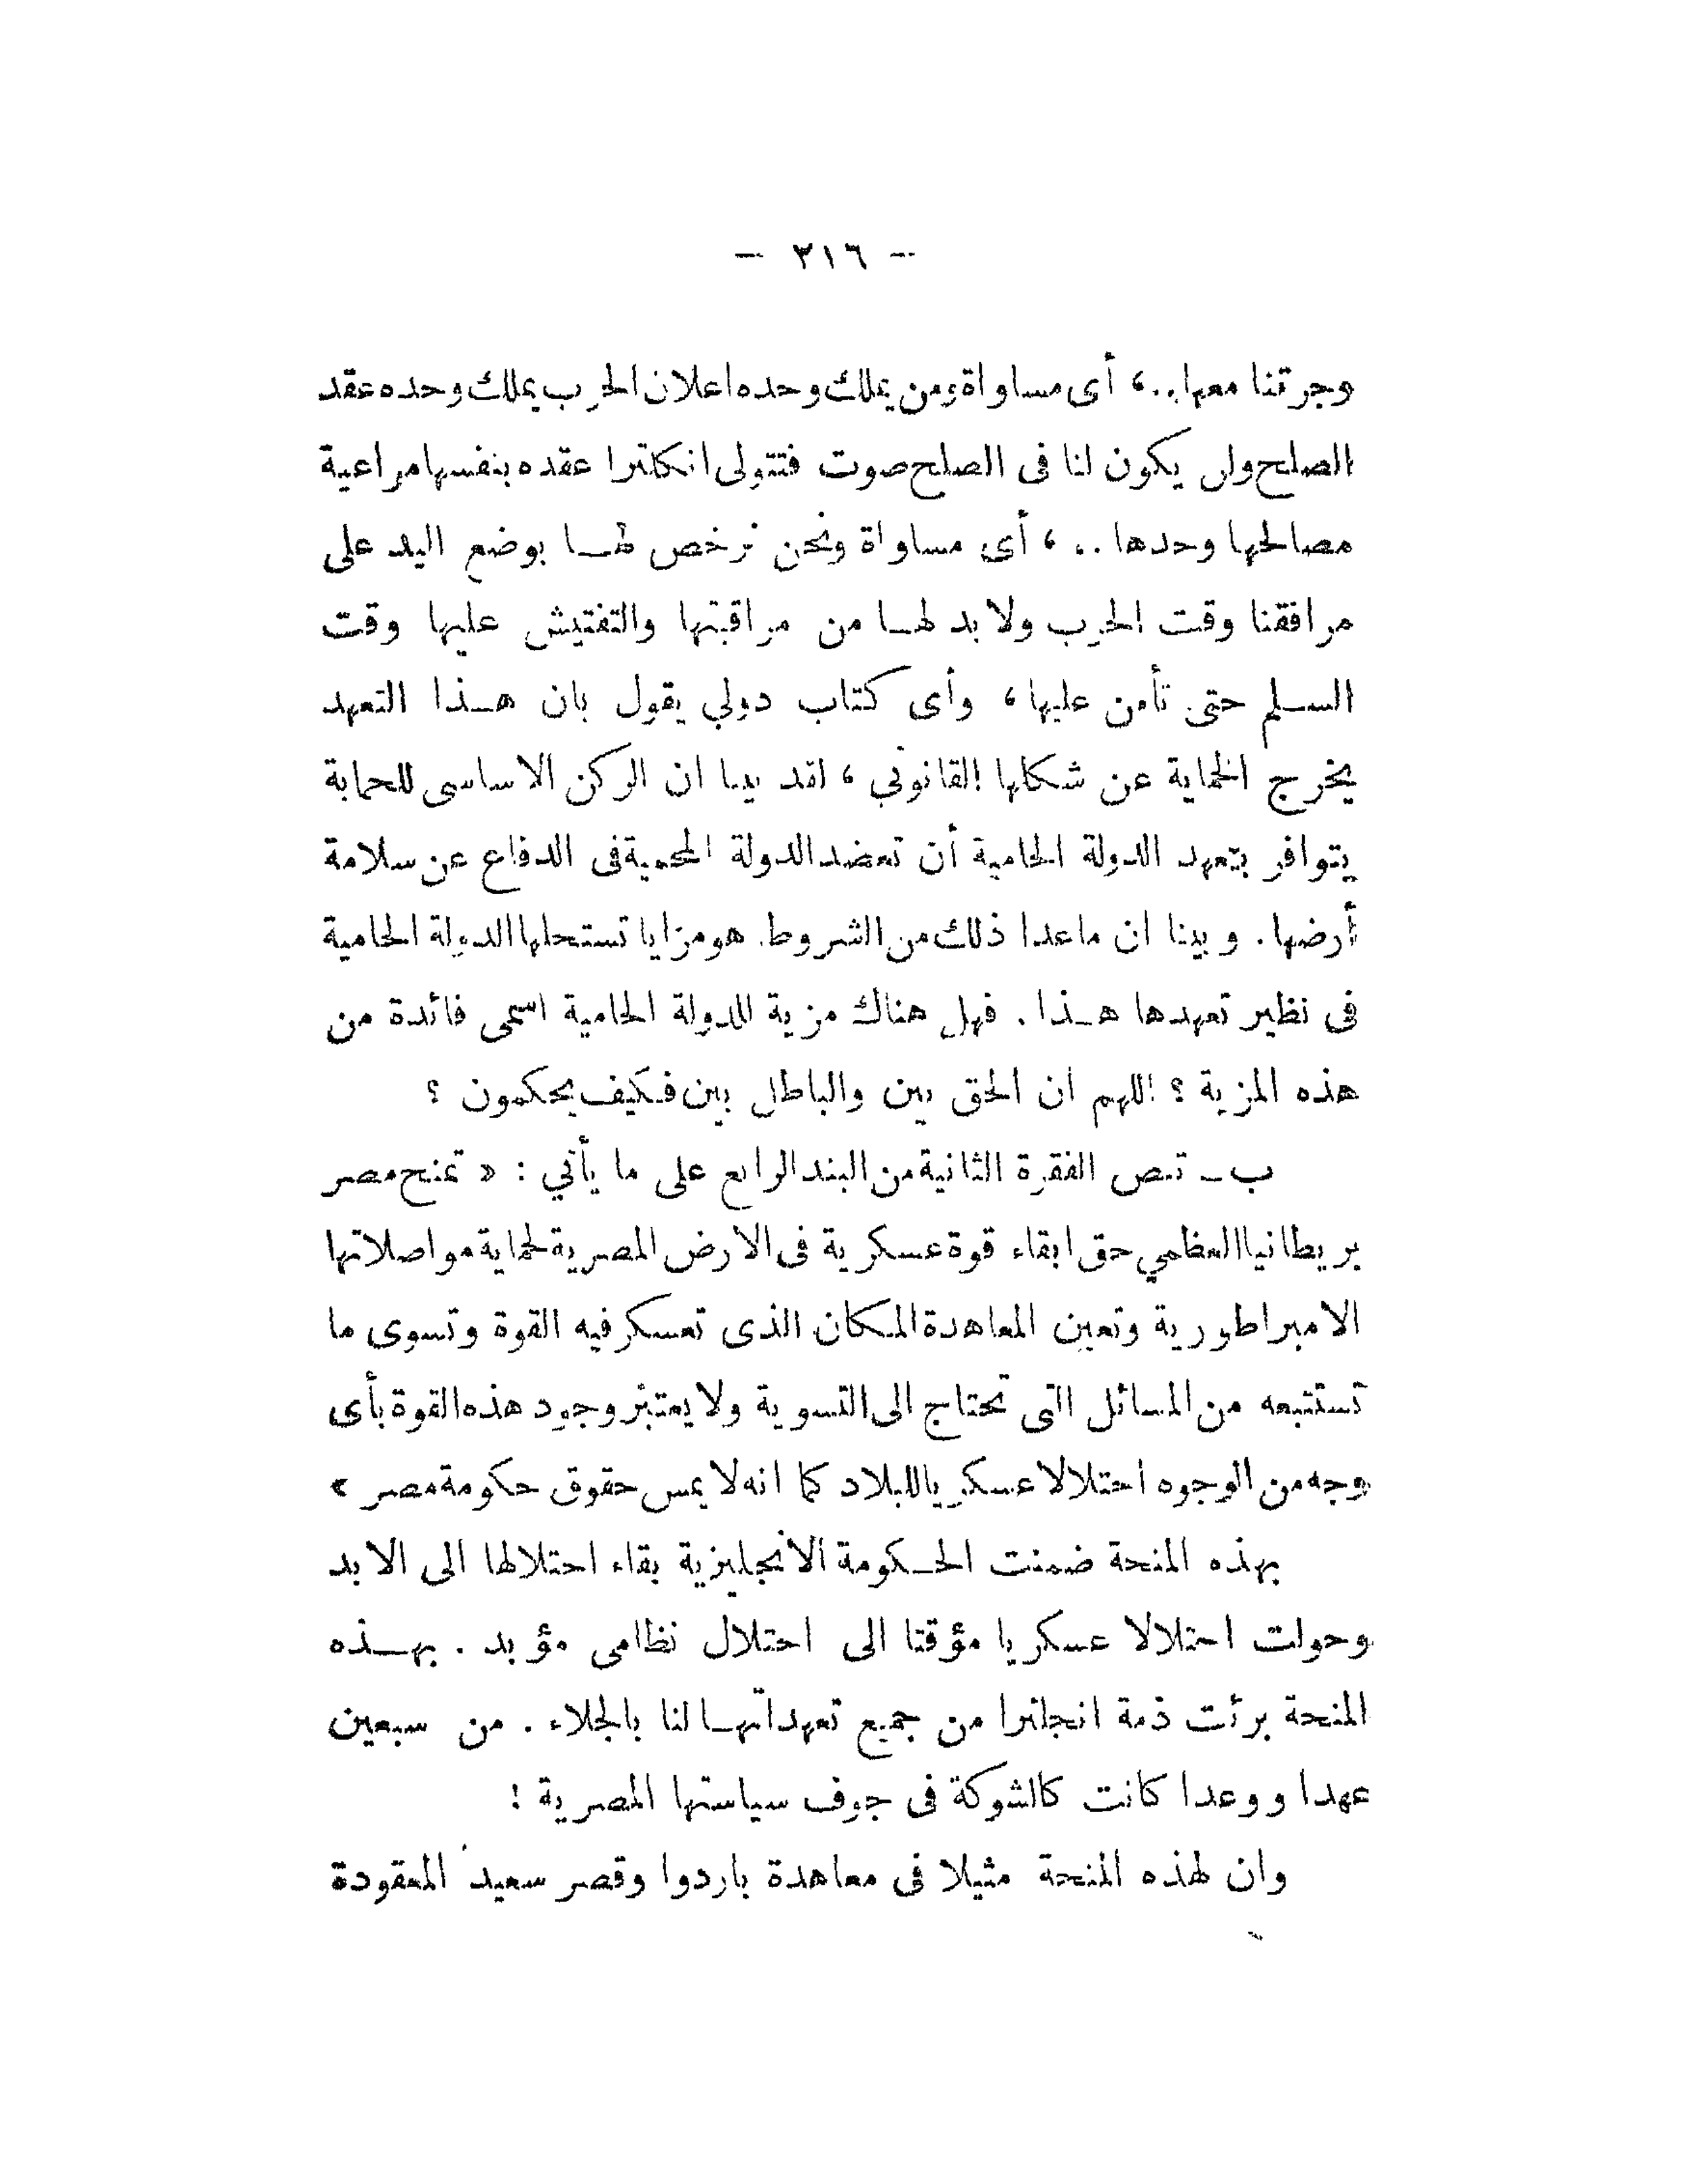 — ٣١٦ —
وجرتنا معها..، أى مساواة ومن يملك وحده اعلان الحرب يملك وحده عقد
الصلح ولن يكون لنا فى الصلح صوت فتتولى انكلترا عقده بنفسها مراعية
مصالحها وحدها ..، أى مساواة ونحن نرخص لهـا بوضع اليد على
مرافقنا وقت الحرب ولا بد لهـا من مراقبتها والتفتيش عليها وقت
السـلم حتى تأمن عليها، وأى كتاب دولي يقول بان هـذا التعهد
يخرج الحماية عن شكلها القانوني، لقد بينا ان الركن الاساسى للحماية
يتوافر بتعهد الدولة الحامية أن تعضد الدولة المحمية فى الدفاع عن سلامة
أرضها . وبينا ان ماعدا ذلك من الشروط هو مزايا تستحلها الدولة الحامية
فى نظير تعهدها هـذا . فهل هناك مزية للدولة الحامية اسمى فائدة من
هذه المزية ؟ اللهم ان الحق بين والباطل بين فـكيف يحكمون ؟
ب ـ تنص الفقرة الثانية من البند الرابع على ما يأتي : « تمنح مصر
بريطانيا العظمي حق ابقاء قوة عسكرية فى الارض المصرية لحماية مواصلاتها
الامبراطورية وتعين المعاهدة المـكان الذى تعسكر فيه القوة وتسوى ما
تستتبعه من المسائل التى تحتاج الى التسوية ولا يعتبر وجود هذه القوة بأى
وجه من الوجوه احتلالا عسكريا للبلاد كما انه لا يمس حقوق حكومة مصر »
بهذه المنحة ضمنت الحـكومة الانجليزية بقاء احتلالها الى الابد
وحولت احتلالا عسكريا مؤقتا الى احتلال نظامى مؤبد . بهـذه
المنحة برئت ذمة انجلترا من جميع تعهداتهـا لنا بالجلاء . من سبعين
عهدا ووعدا كانت كالشوكة فى جوف سياستها المصرية !
وان لهذه المنحة مثيلا فى معاهدة باردوا وقصر سعيد المعقودة